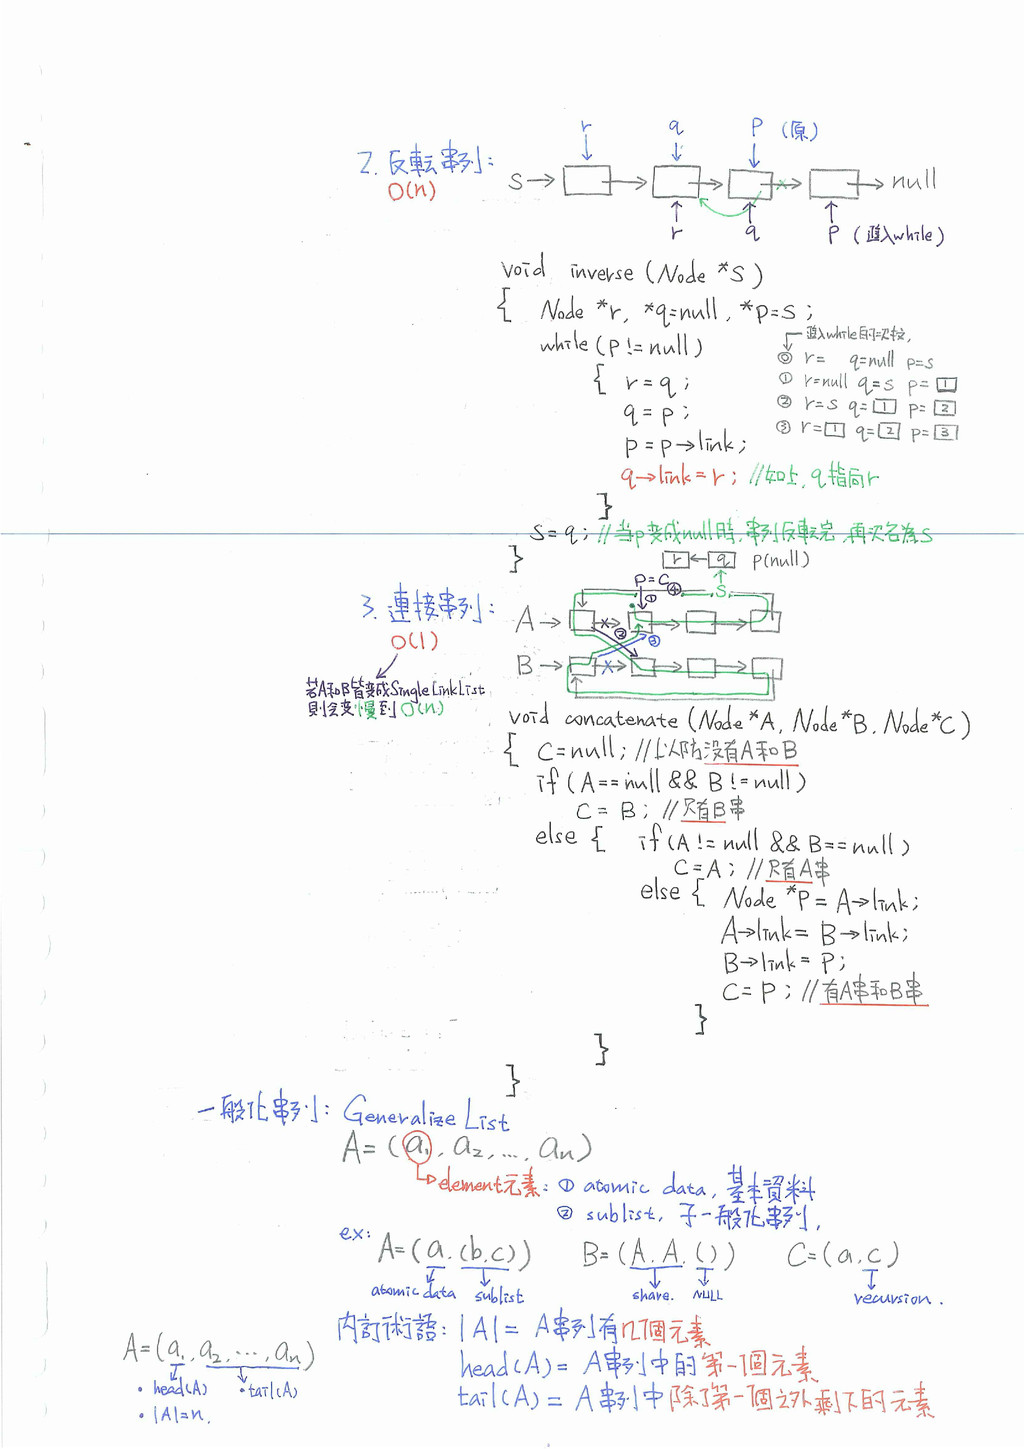 r q P (原)
2. 反転串列:
O(n)
S→ → → → → null
r q P (進入while)
void inverse (Node *S)
{ Node *r, *q=null, *p=s;
進入while的次數,
while (P != null)
⓪ r= q=null p=s
{ r = q;
① r=null q=s p=1
q = p;
② r=s q=1 p=2
p = p→link;
③ r=1 q=2 p=3
q→link = r; //如上, q指向r
}
S = q; //当p变成null時, 串列反転完, 再次名為S
}
r ← q P(null)
S
3. 連接串列:
O(1)
P=C ④
①
A→
②
③
B→
若A和B皆变成Single Link List
則会变慢到O(n)
void concatenate (Node *A, Node *B, Node *C)
{ C=null; //以防没有A和B
if (A==null && B!=null)
C = B; //只有B串
else { if (A!=null && B==null)
C=A; //只有A串
else { Node *P = A→link;
A→link = B→link;
B→link = P;
C = P; //有A串和B串
}
}
}
一般化串列: Generalize List
A=(a1, a2, ..., an)
element元素: ① atomic data, 基本資料
② sublist, 子一般化串列,
ex: A=(a, (b,c)) B=(A, A, ()) C=(a,c)
atomic data sublist share. NULL recursion.
内訂術語: |A| = A串列有几個元素
head(A) = A串列中的第一個元素
tail(A) = A串列中除了第一個之外剩下的元素
A=(a1, a2, ..., an)
• head(A) • tail(A)
• |A|=n.